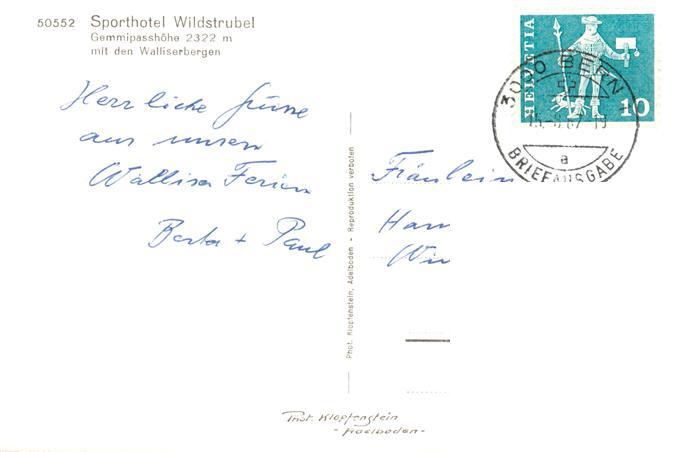 50552 Sporthotel Wildstrubel
Gemmipasshöhe 2322 m
mit den Walliserbergen
Herrliche Grüsse
aus unsern
Walliser Ferien
Berta + Paul
Phot. Klopfenstein, Adelboden - Reproduktion verboten
HELVETIA
10
3000 BERN
a
BRIEFAUSGABE
Fräulein
Phot. Klopfenstein
- Adelboden -